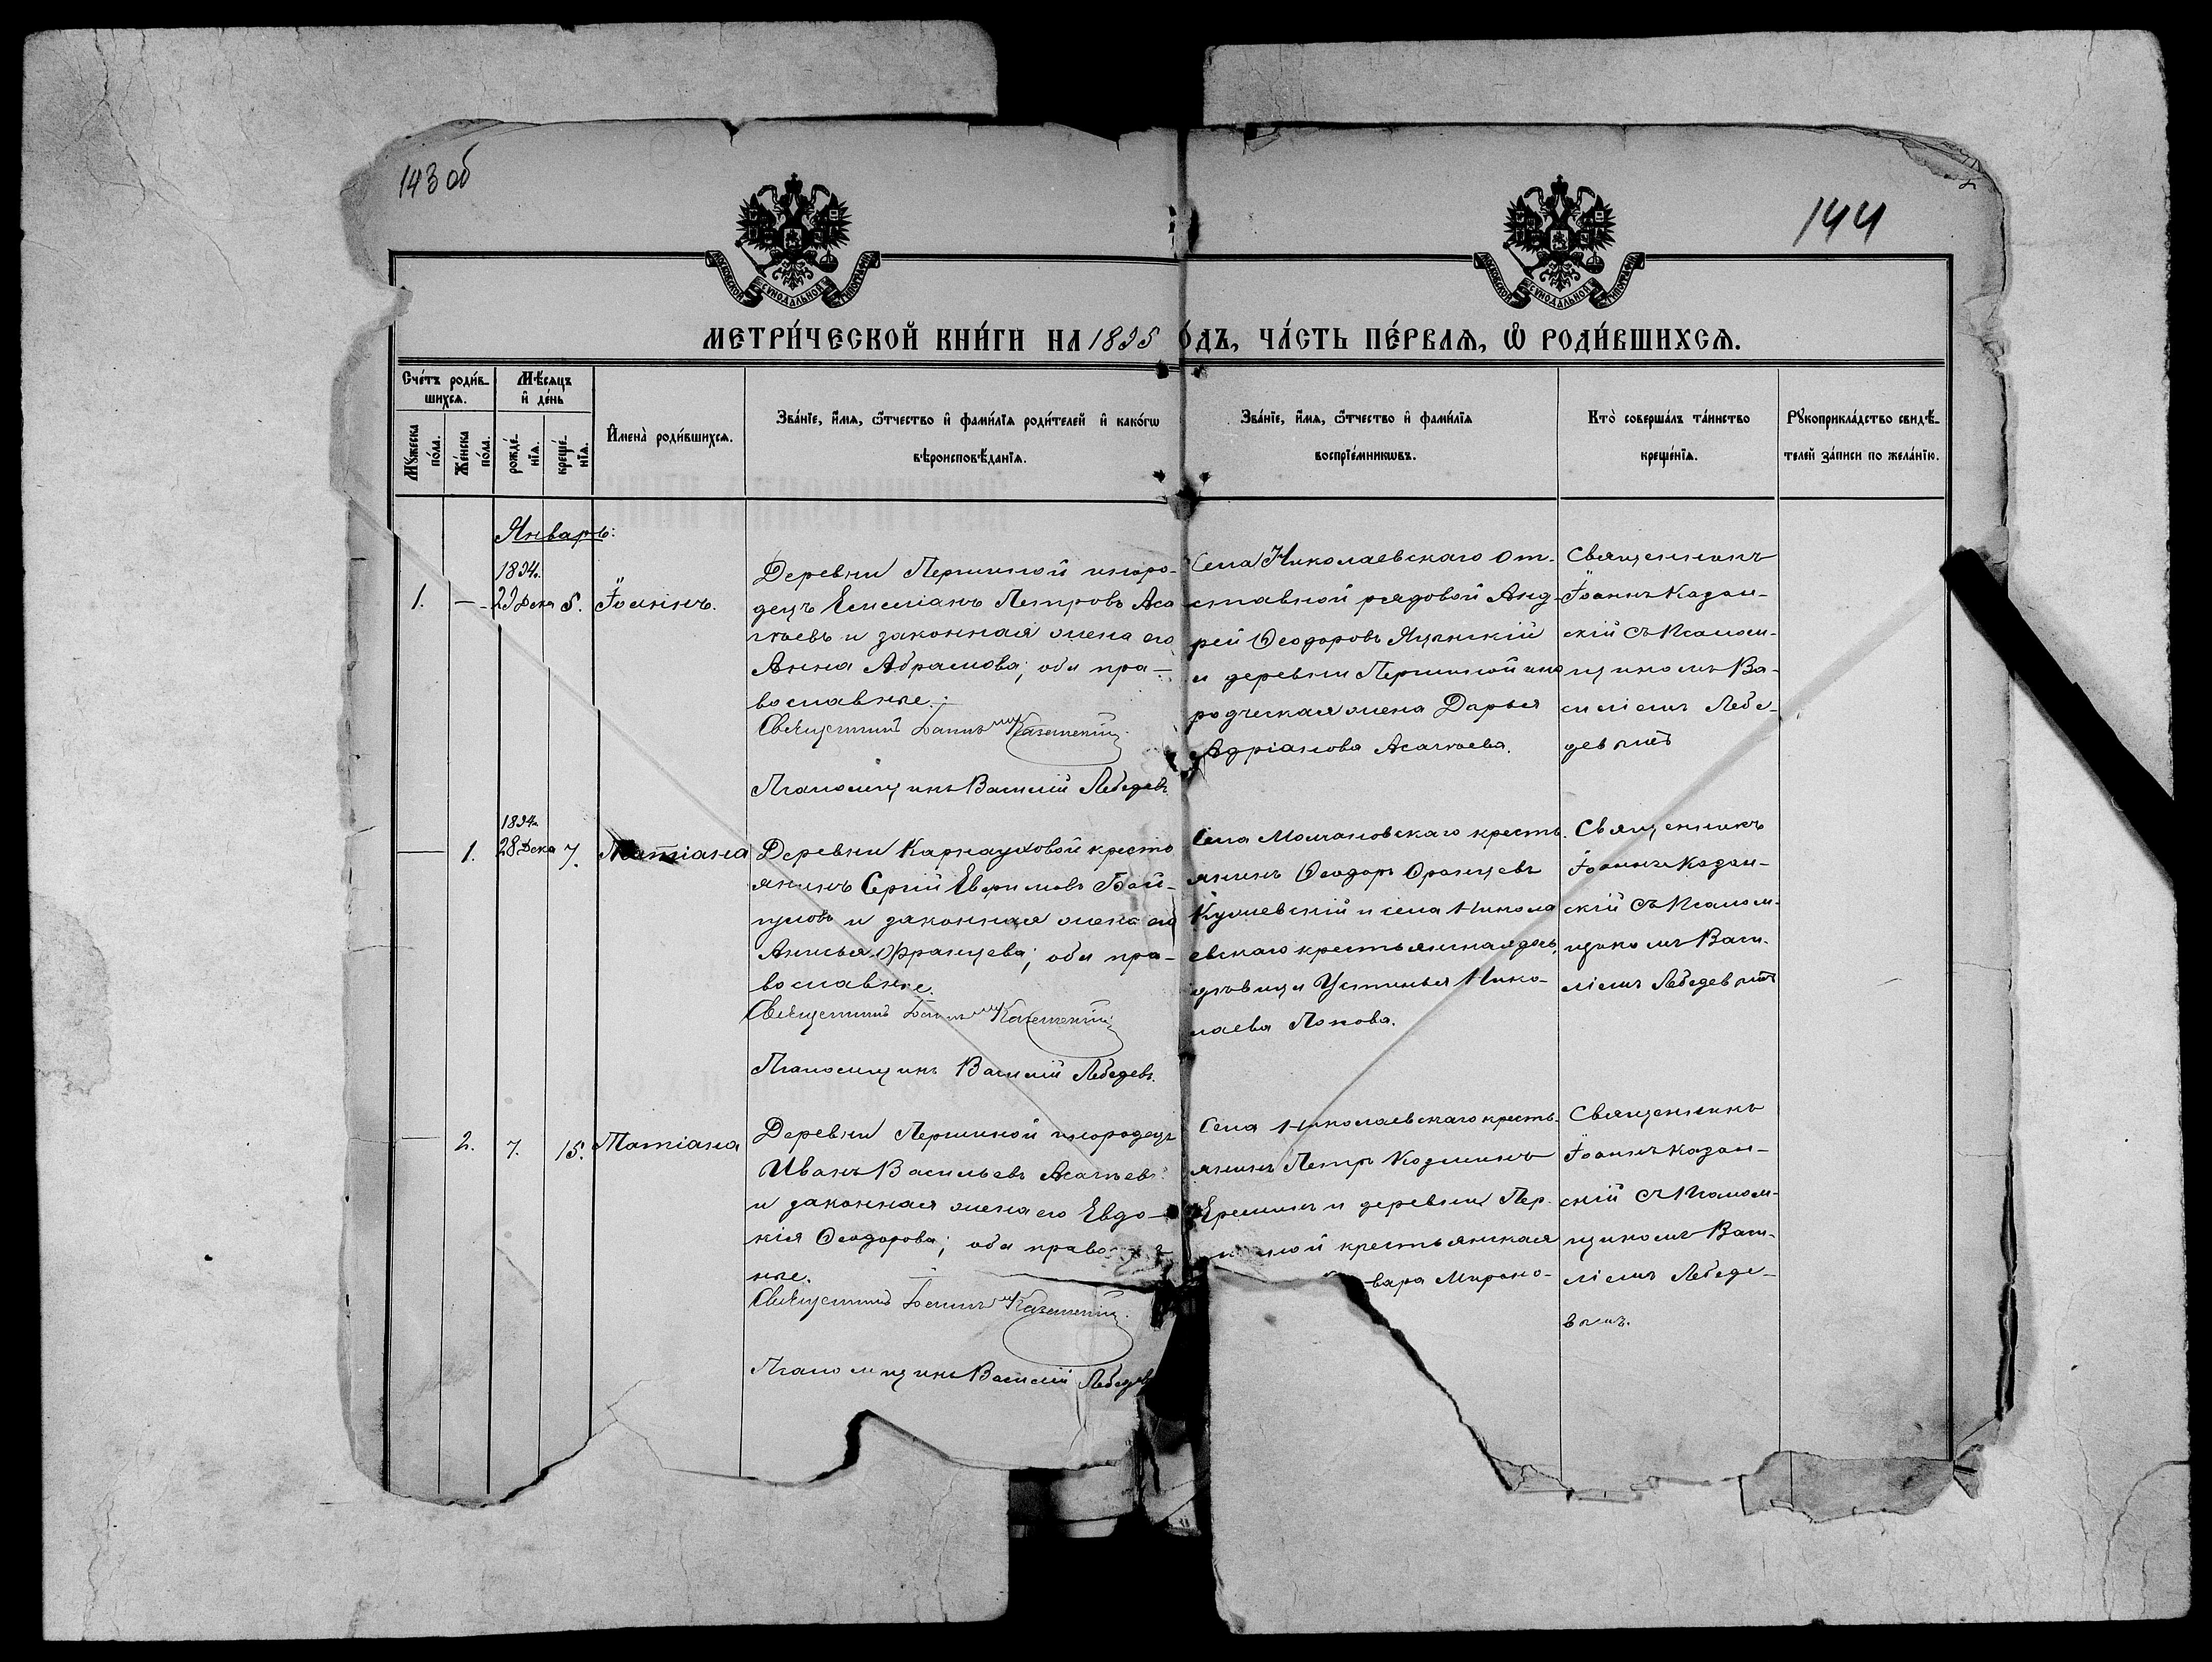 143 об
144
МОСКОВСКОЙ СѴНОДАЛЬНОЙ ТИПОГРАФІИ
МОСКОВСКОЙ СѴНОДАЛЬНОЙ ТИПОГРАФІИ
МЕТРИ́ЧЕСКОЙ КНИ́ГИ НА 1895 О́ДЪ, ЧА́СТЬ ПЕ́РВАѦ, Ѽ РОДИ́ВШИХСѦ.
Сче́тъ роди́в-
шихсѧ.
Мꙋ́жеска
по́ла.
Же́нска
по́ла.
Мѣ́сѧцъ
и҆ де́нь
рожде́-
нїѧ.
креще́-
нїѧ.
И҆мена̀ роди́вшихсѧ.
Зва́нїе, и҆́мѧ, ѻ҆́тчество и҆ фами́лїѧ роди́телей и҆ како́гѡ
вѣроисповѣ́данїѧ.
Зва́нїе, и҆́мѧ, ѻ҆́тчество и҆ фами́лїѧ
воспрїе́мникѡвъ.
Кто̀ соверша́лъ та́инство
креще́нїѧ.
Рꙋкоприкла́дство свидѣ́-
телей за́писи по жела́нїю.
Январь:
1894г.
1. — 29 Дека 5. Іоаннъ.
Деревни Першиной иноро-
децъ Емиліанъ Петровъ Аса
лхаевъ и законная жена его
Анна Абрамова; оба пра-
вославные.
Священникъ Іоаннъ Казанскій
Псаломщикъ Василій Лебедевъ
Села Николаевскаго от-
ставной рядовой Анд-
рей Ѳеодоровъ
и деревни Першиной ино
родческая жена Дарья
Адріанова
Священникъ
Іоаннъ Казан-
скій съ Псалом-
щикомъ Ва-
силіемъ Лебе-
девымъ
1894г.
— 1. 28 Дека 7. Татіана
Деревни Карнауховой кресть
янинъ Сергій Евфимовъ
и законная жена его
Анисья Францева; оба пра-
вославные.
Священникъ Іоаннъ Казанскій
Псаломщикъ Василій Лебедевъ.
Села Молчановскаго кресть
янинъ Ѳеодоръ Францевъ
и села Никола
евскаго крестьянская дочь,
дѣвица Устинья Нико-
лаева Попова.
Священникъ
Іоаннъ Казан-
скій съ Псалом-
щикомъ Васи-
ліемъ Лебедевымъ
— 2. 7. 15. Татіана
Деревни Першиной инородецъ
Иванъ Васильевъ
и законная жена его Евдо-
кія Ѳеодорова; оба правосла
ные.
Священникъ Іоаннъ Казанскій.
Псаломщикъ Василій Лебедевъ
Села Николаевскаго кресть-
янинъ Петръ Козминъ
Ереминъ и деревни Пер-
ной крестьянская
вара Мироно-
Священникъ
Іоаннъ Казан-
скій съ Псалом-
щикомъ Васи-
ліемъ Лебеде-
вымъ.